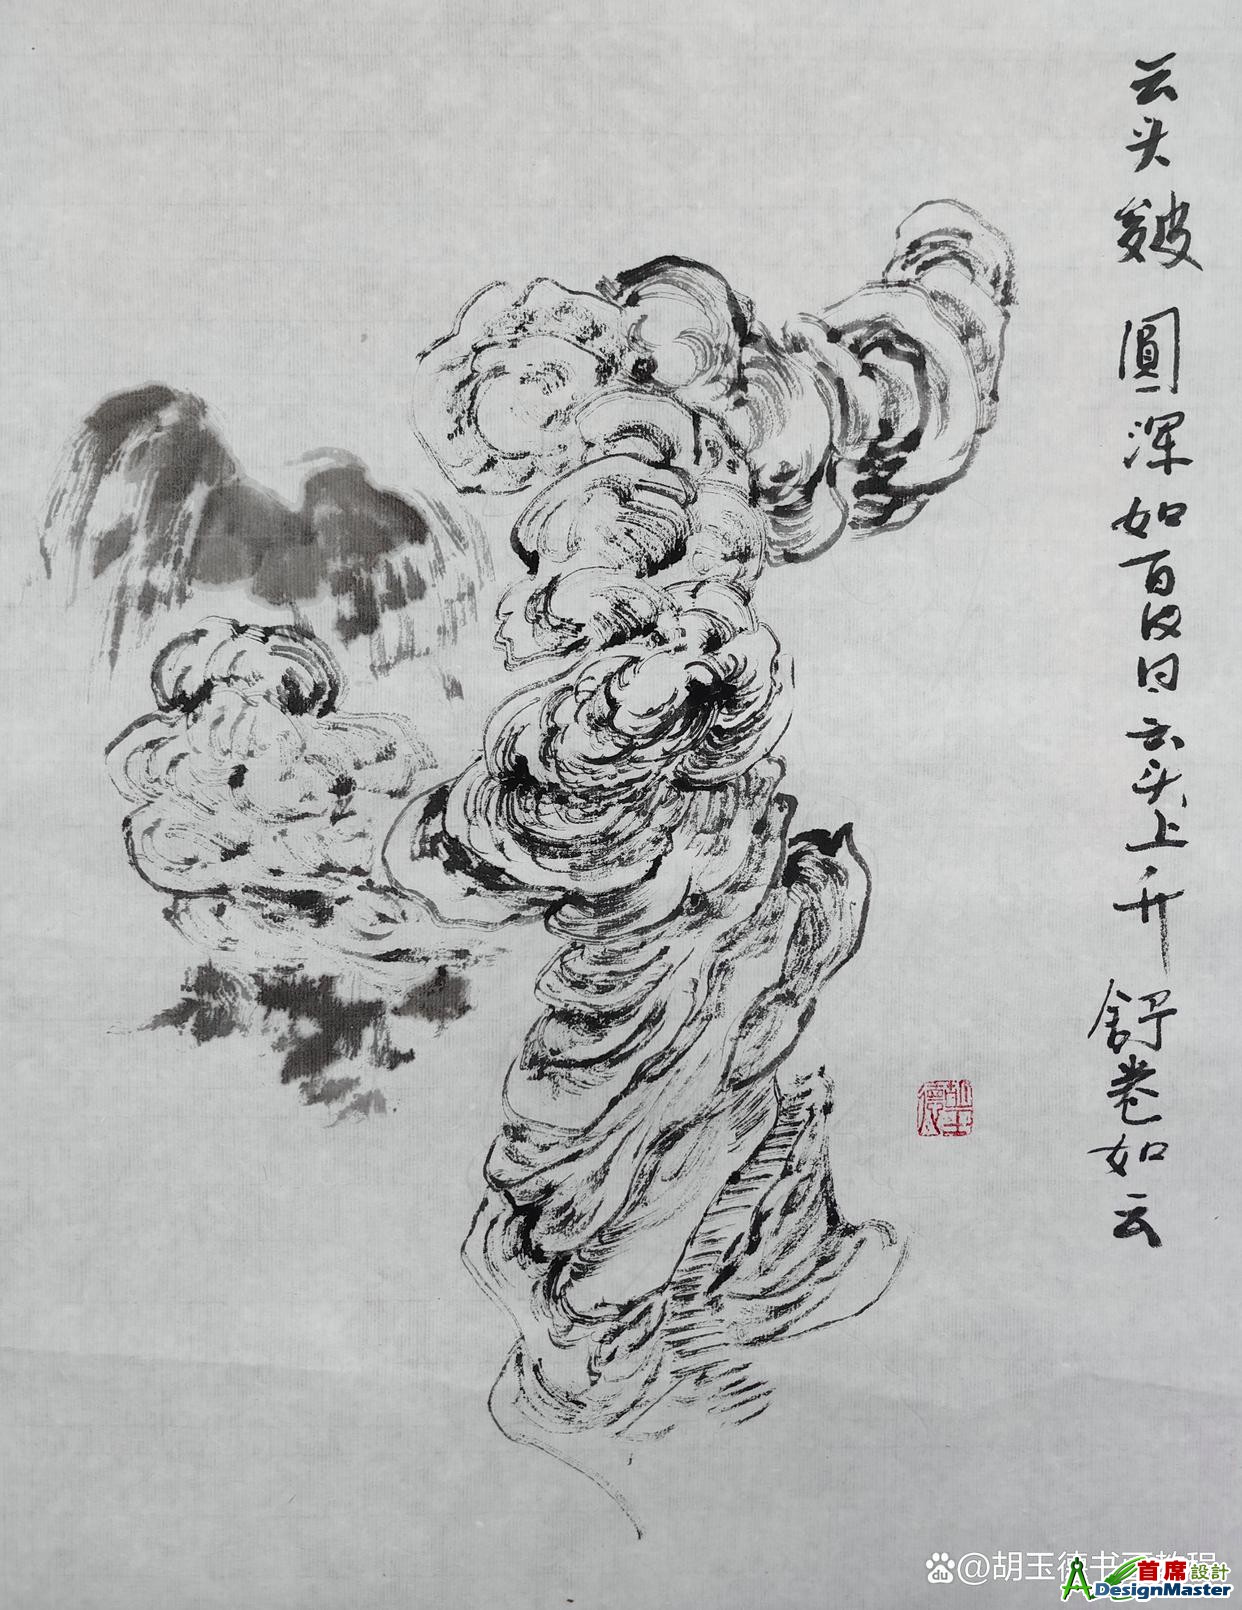 云头皴 圓浑如夏日云头上升 舒卷如云
胡玉德
du @胡玉德书画教程
首席設計
ADesignMaster